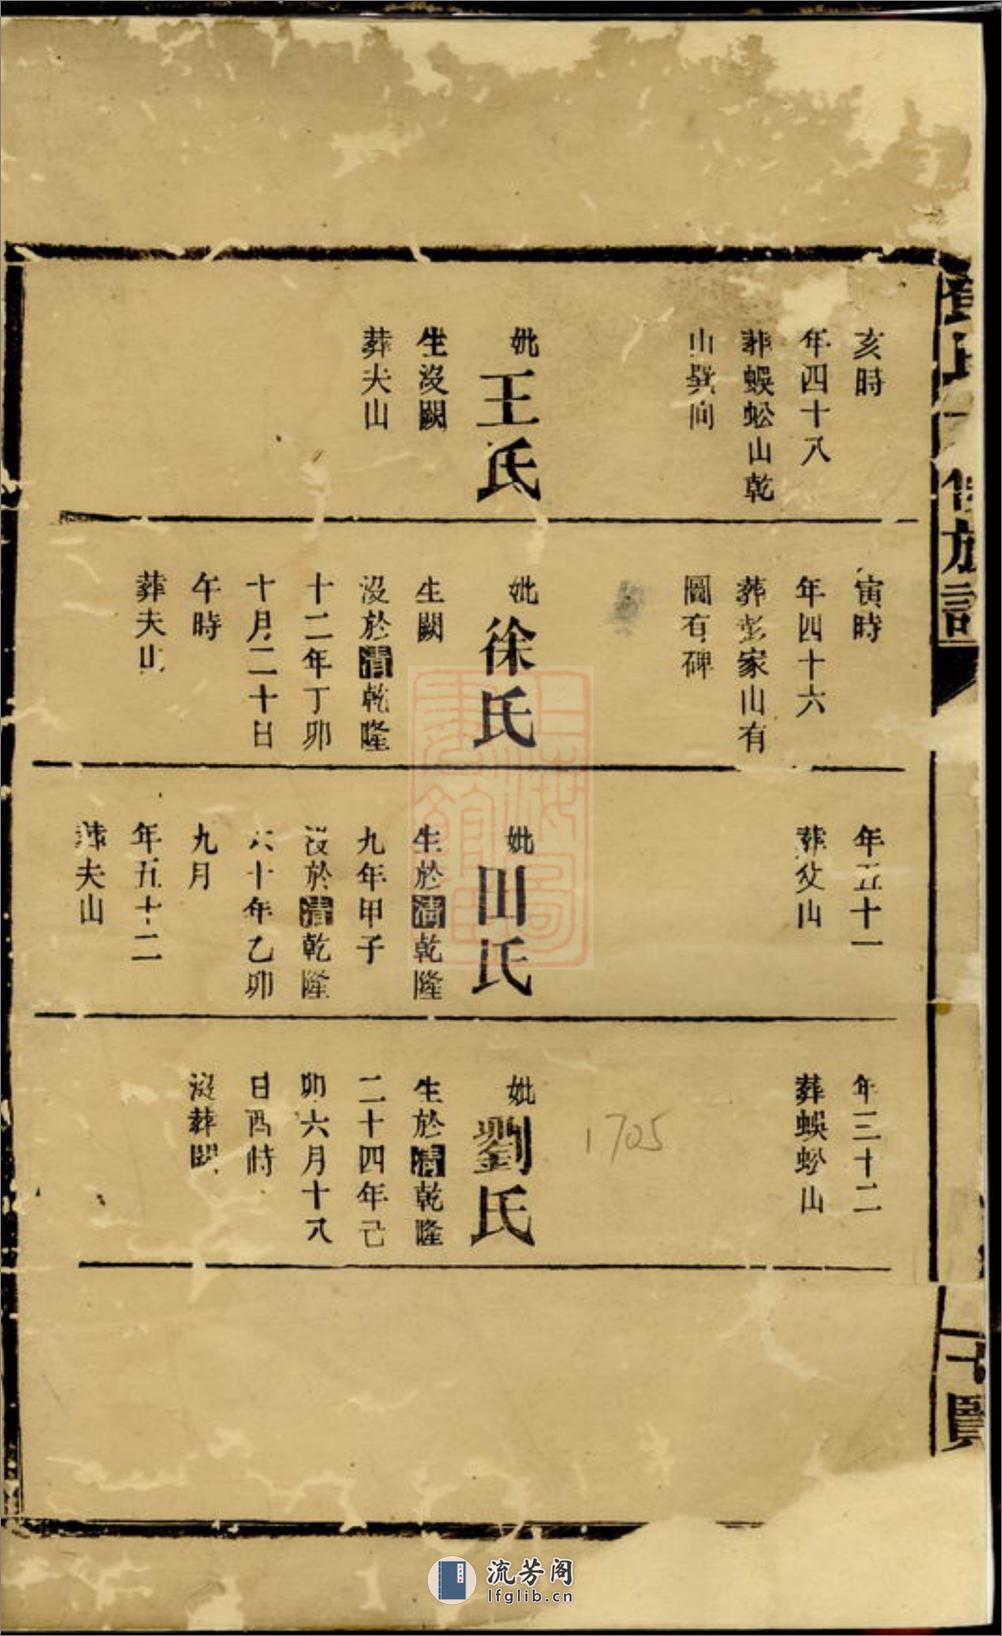 亥時
年四十八
葬蜈蚣山乾
山巽向
妣王氏
生沒闕
葬夫山
寅時
年四十六
葬彭家山有
圖有碑
妣徐氏
生闕
沒於清乾隆
十二年丁卯
十月二十日
午時
葬夫山
年五十一
葬父山
妣田氏
生於清乾隆
九年甲子
沒於清乾隆
六十年乙卯
九月
年五十二
葬夫山
年三十二
葬蜈蚣山
妣劉氏
生於清乾隆
二十四年己
卯六月十八
日酉時
沒葬闕
1705
上海圖書館藏
流芳阁
lfglib.cn